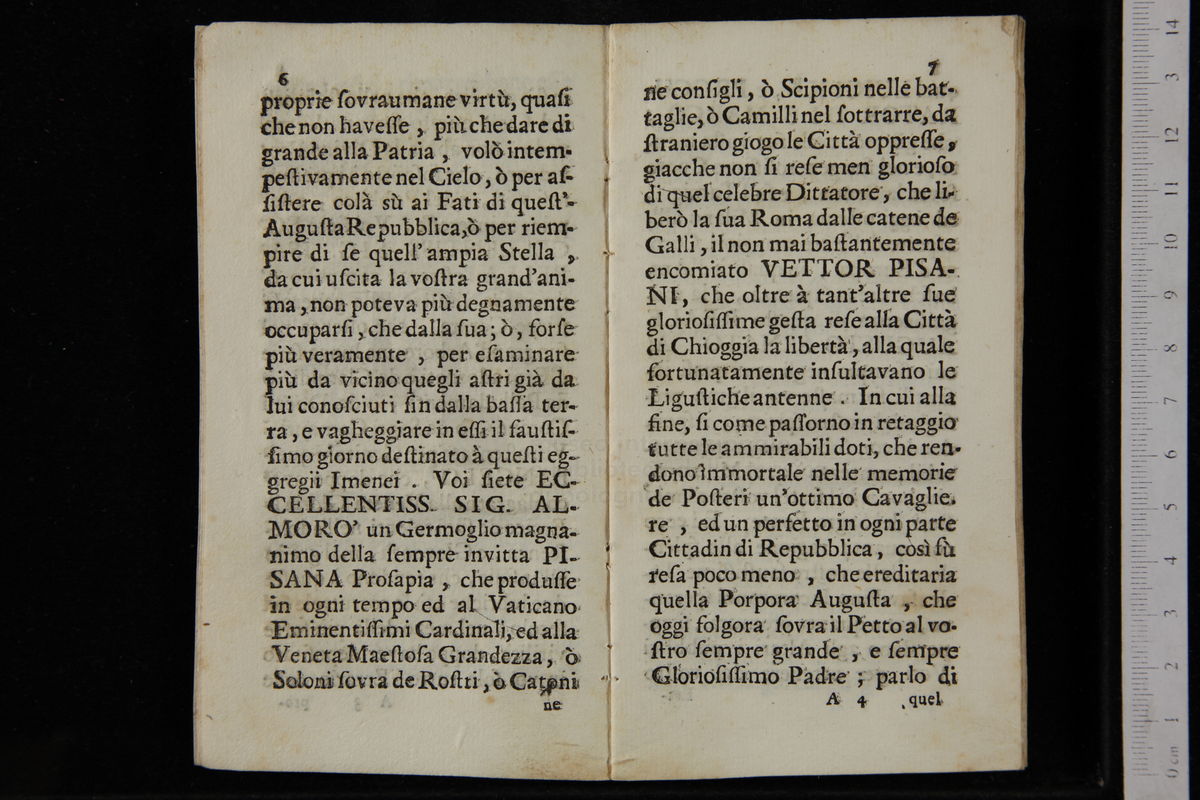 6
proprie ſovraumane virtù, quaſi
che non haveſſe, più che dare di
grande alla Patria, volò intem-
peſtivamente nel Cielo, ò per aſ-
ſiſtere colà sù ai Fati di queſt'-
Auguſta Repubblica, ò per riem-
pire di ſe quell' ampia Stella,
da cui uſcita la voſtra grand'ani-
ma, non poteva più degnamente
occuparſi, che dalla ſua; ò, forſe
più veramente, per eſaminare
più da vicino quegli aſtri già da
lui conoſciuti ſin dalla baſſa ter-
ra, e vagheggiare in eſſi il fauſtiſ-
ſimo giorno deſtinato à queſti eg-
gregii Imenei. Voi ſiete EC-
CELLENTISS. SIG. AL-
MORO' un Germoglio magna-
nimo della ſempre invitta PI-
SANA Proſapia, che produſſe
in ogni tempo ed al Vaticano
Eminentiſſimi Cardinali, ed alla
Veneta Maeſtoſa Grandezza, ò
Soloni ſovra de Roſtri, ò Catoni
ne
7
ne conſigli, ò Scipioni nelle bat-
taglie, ò Camilli nel ſottrarre, da
ſtraniero giogo le Città oppreſſe,
giacche non ſi reſe men glorioſo
di quel celebre Dittatore, che li-
berò la ſua Roma dalle catene de
Galli, il non mai baſtantemente
encomiato VETTOR PISA-
NI, che oltre à tant'altre ſue
glorioſiſſime geſta reſe alla Città
di Chioggia la libertà, alla quale
fortunatamente inſultavano le
Liguſtiche antenne. In cui alla
fine, ſi come paſſorno in retaggio
tutte le ammirabili doti, che ren-
dono immortale nelle memorie
de Poſteri un'ottimo Cavaglie-
re, ed un perfetto in ogni parte
Cittadin di Repubblica, così fù
reſa poco meno, che ereditaria
quella Porpora Auguſta, che
oggi folgora ſovra il Petto al vo-
ſtro ſempre grande, e ſempre
Glorioſiſſimo Padre; parlo di
A 4 quel
14
3
12
11
10
9
8
7
6
5
4
3
2
1
0 cm